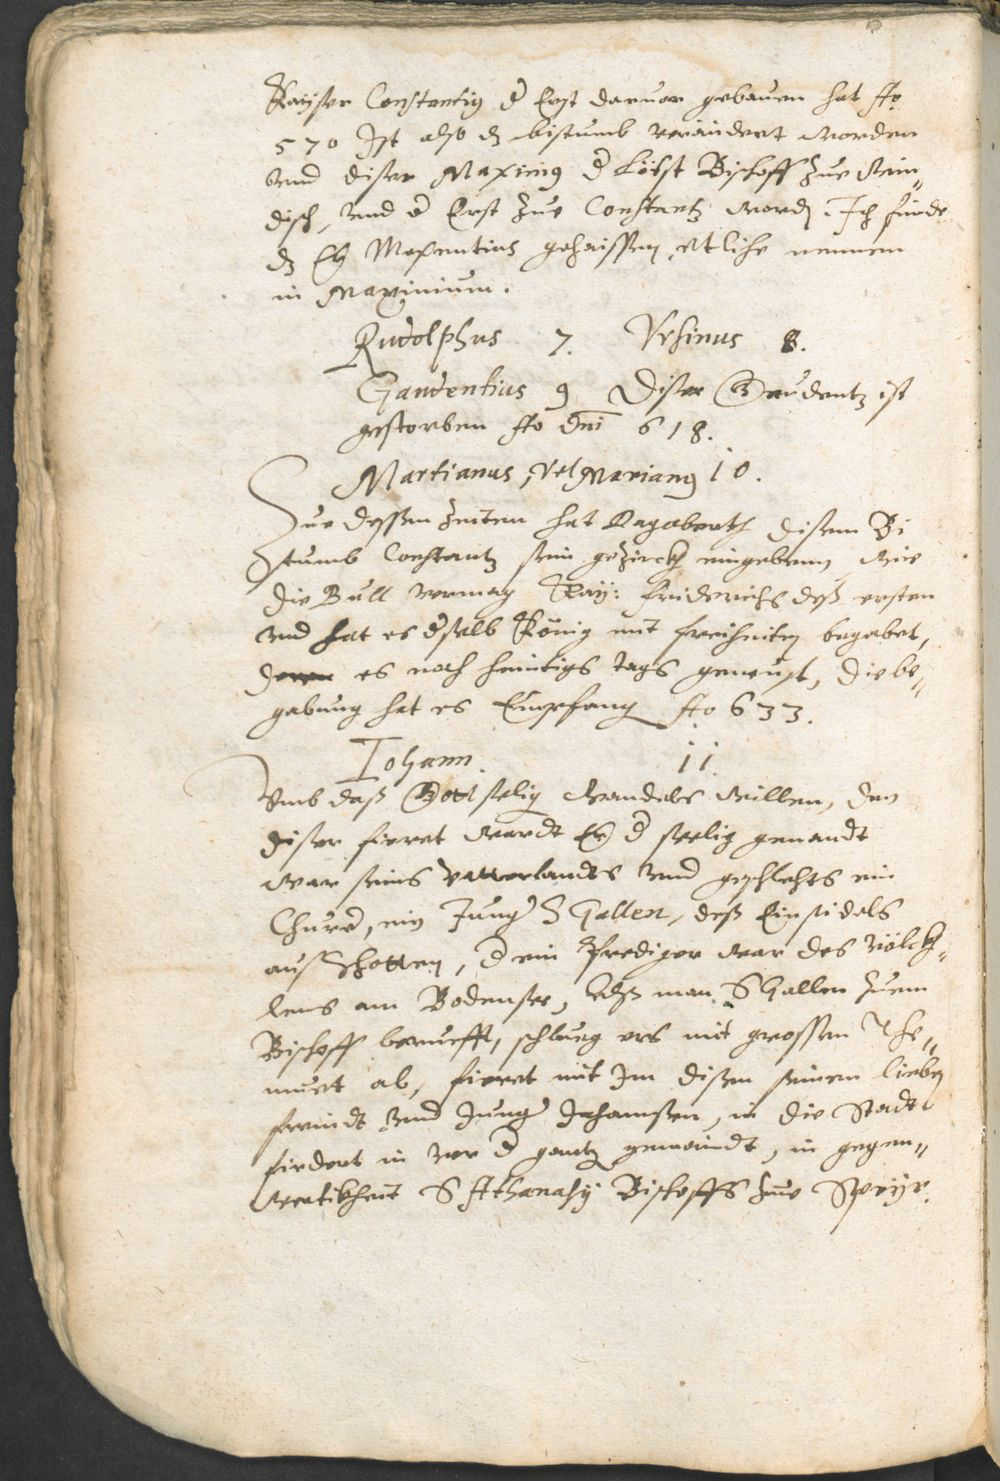 Kayser Constantius d Erst daruor gebauen hat Ao
570 Ist also dz bistumb verändert worden
vnnd diser Maximus d Letst Bischoff zue Win„
disch, vnnd d Erst zue Constantz worden. Ich finde
dz Er Maxentius gehaissen, etliche nennen
in Maximium.
Rudolphus 7. Vrsinus 8.
Gaudentius 9 Diser Gaudentz ist
gestorben Ao dni 618.
Martianus, Vel Marianus 10.
Zue dessen zeiten hat Dagobert disem Bi
stumb Constantz sein gezirck eingeben, wie
die Bull vermag Kay: Friderichs deß ersten
vnd hat es dselb König mit freiheiten begabet,
es noch heintigs tags geneust, die be„
gabung hat es Empfang Ao 633.
Iohann. 11.
Vmb daß Gottselig wandels willen, den
diser fieret wardt Er d seelig genandt
war seins vatterlandts vnnd geschlechts ein
Churer, ein Junger S Gallen, deß Einsidels
auß Schotten, d ein Prediger war des völck„
leins am Bodensee, Alß man S Gallen zuem
Bischoff beruefft, schlueg ers mit grossem The„
muet ab, fieret mit Im disen seinen lieben
freindt vnd Junger Johanssen, in die Stadt
firdert in vor d gantz gemaindt, in gegen„
wertikheit S Athanasy Bischoffs zue Speyr.